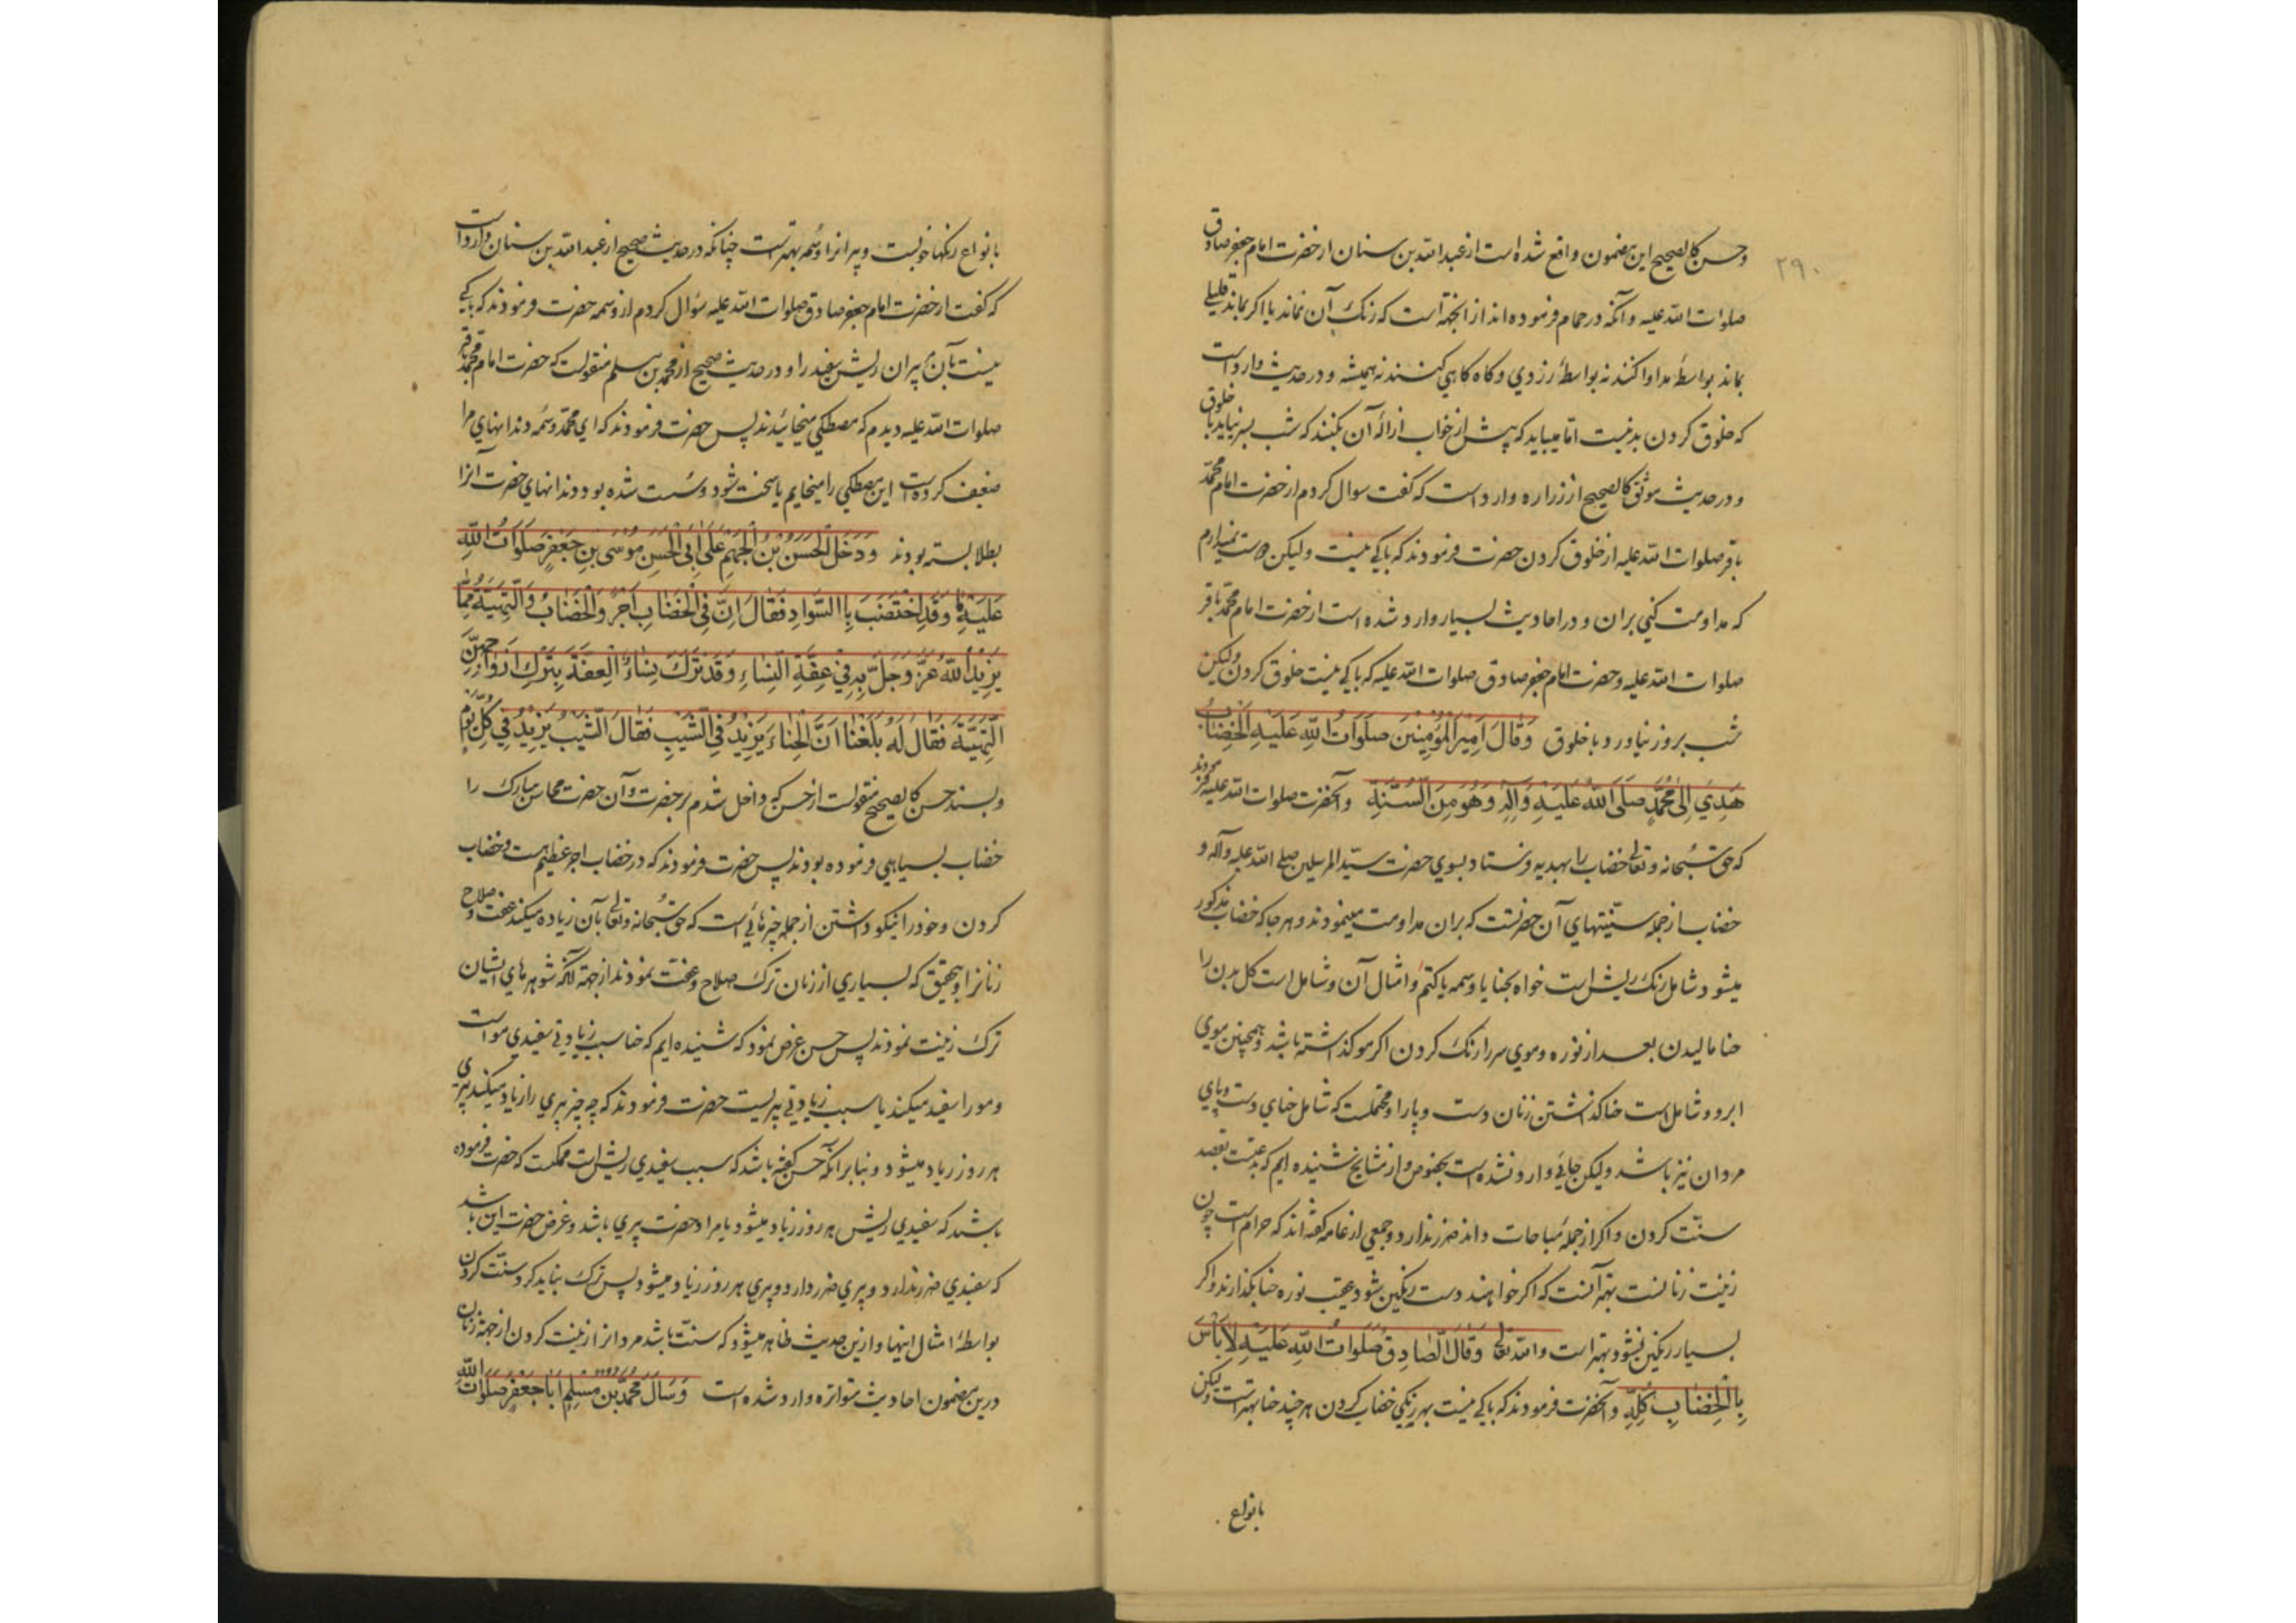 ۲۹۰
وحسن کالصحیح این مضمون واقع شده است از عبد الله بن سنان از حضرت امام جعفر صادق
صلوات الله علیه و آنکه در حمام فرموده اند از انجهة است که رنک آن نماند یا اکر بماند قلیلی
بماند بواسطهٔ مداوا کنند نه بواسطهٔ زردی وکاه کاهی کنند نه همیشه و در حدیث وارد است
که خلوق کردن بد نیست اما میباید که پیش از خواب ازالهٔ آن بکنند که شب بسر نیاید با خلوق
و در حدیث موثق کالصحیح از زراره وارد است که کفت سوال کردم از حضرت امام محمد
باقر صلوات الله علیه از خلوق کردن حضرت فرمودند که باکی نیست ولیکن دوست نمیدارم
که مداومت کنی بران و در احادیث بسیار وارد شده است از حضرت امام محمد باقر
صلوات الله علیه وحضرت امام جعفر صادق صلوات الله علیه که باکی نیست خلوق کردن ولیکن
شب بروز نیاورد با خلوق وَقٰالَ اَمِیْرُ الْمُؤْمِنِیْنَ صَلَوَاتُ اللّٰهِ عَلَیْهِ الْخِضَابُ
هَدْیٌ اِلیٰ مُحَمَّدٍ صَلَّی اللّٰهُ عَلَیْهِ وَاٰلِهِ وَهُوَ مِنَ السُّنَّةِ وآنحضرت صلوات الله علیه فرمودند
که حق سبحانه وتعالی خضاب را بهدیه فرستاد بسوی حضرت سید المرسلین صلی الله علیه وآله و
خضاب از جمله سنتهای آن حضرتست که بران مداومت مینمودند وهر جا که خضاب مذکور
میشود شامل رنک ریش است خواه بحنا یا وسمه یا کتم وامثال آن وشامل است کل بدن را
حنا مالیدن بعد از نوره وموی سر را رنک کردن اکر مو کذاشته باشد وهمچنین موی
ابرو وشامل است حنا کذاشتن زنان دست وپا را ومحتملست که شامل حنای دست وپای
مردان نیز باشد ولیکن جائی وارد نشده است بخصوص واز مشایخ شنیده ایم که بدعتست بقصد
سنّت کردن واکر از جملهٔ مباحات داند ضرر ندارد وجمعی از عامه کفته اند که حرام است چون
زینت زنانست بهتر آنست که اکر خواهند دست رنکین شود بعقب نوره حنا بکذارند واکر
بسیار رنکین نشود بهتر است والله تعالی وَقٰالَ الصّٰادِقُ صَلَوٰاتُ اللّٰهِ عَلَیْهِ لاٰبَأْسَ
بِالْخِضٰابِ کُلِّهِ وآنحضرت فرمودند که باکی نیست بهر رنکی خضاب کردن هر چند حنا بهتر است ولیکن
بانواع
بانواع رنکها خوبست و پیرانرا وسمه بهتر است چنانکه در حدیث صحیح از عبد الله بن سنان وارد است
که کفت از حضرت امام جعفر صادق صلوات الله علیه سؤال کردم از وسمه حضرت فرمودند که باکی
نیست بآن پیران ریش سفید را و در حدیث صحیح از محمد بن مسلم منقولست که حضرت امام محمد باقر
صلوات الله علیه دیدم که مصطکی میخائیدند پس حضرت فرمودند که ای محمد وسمه دندانهای مرا
ضعیف کرده است این مصطکی را میخایم تا سخت شود وسست شده بود دندانهای حضرت آنرا
بطلا بسته بودند وَدَخَلَ الْحَسَنُ بْنُ الْجَهْمِ عَلیٰ اَبِی الْحَسَنِ مُوْسَی بْنِ جَعْفَرٍ صَلَوَاتُ اللّٰهِ
عَلَیْهِمٰا وَقَدِ اخْتَضَبَ بِالسَّوَادِ فَقٰالَ اِنَّ فِی الْخِضٰابِ اَجْرٌ وَالْخِضٰابُ وَالتَّهْیِئَةُ مِمّٰا
یَزِیْدُ اللّٰهُ عَزَّ وَجَلَّ بِهِ فِیْ عِفَّةِ النِّسٰاءِ وَقَدْ تَرَکَ نِسٰاءٌ الْعِفَّةَ بِتَرْکِ اَزْوَاجِهِنَّ
التَّهْیِئَةَ فَقٰالَ لَهُ بَلَغَنٰا اَنَّ الْحِنّٰاءَ یَزِیْدُ فِی الشَّیْبِ فَقٰالَ الشَّیْبُ یَزِیْدُ فِیْ کُلِّ یَوْمٍ
وبسند حسن کالصحیح منقولست از حسن که داخل شدم بر حضرت وآن حضرت محاسن مبارک را
خضاب بسیاهی فرموده بودند پس حضرت فرمودند که در خضاب اجر عظیم هست وخضاب
کردن وخود را نیکو داشتن از جمله چیزهائیست که حق سبحانه وتعالی بآن زیاده میکند عفت وصلاح
زنانرا وبتحقیق که بسیاری از زنان ترک صلاح وعفت نمودند از جهة آنکه شوهرهای ایشان
ترک زینت نمودند پس حسن عرض نمود که شنیده ایم که حنا سبب زیادتی سفیدی مو است
ومو را سفید میکند یا سبب زیادتی پیریست حضرت فرمودند که چه چیز پیری را زیاد میکند پیری
هر روز زیاد میشود و بنا بر آنکه حسن کفته باشد که سبب سفیدی ریش است ممکنست که حضرت فرموده
باشد که سفیدی ریش هر روز زیاد میشود یا مراد حضرت پیری باشد وغرض حضرت این باشد
که سفیدی ضرر ندارد و پیری ضرر دارد وپیری هر روز زیاد میشود پس ترک نباید کرد سنّت کردن
بواسطهٔ امثال اینها و ازین حدیث ظاهر میشود که سنّت باشد مردانرا زینت کردن از جهة زنان
درین مضمون احادیث متواتره وارد شده است وَسَأَلَ مُحَمَّدُ بْنُ مُسْلِمٍ اَبٰا جَعْفَرٍ صَلَوٰاتُ اللّٰهِ